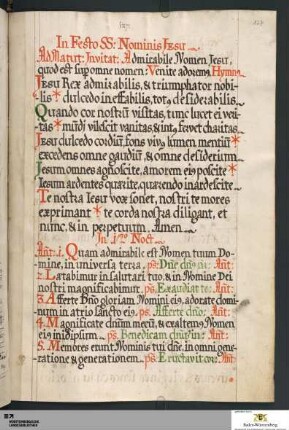 127
In Festo SS: Nominis Jesu
Ad Matut: Invitat: Admirabile Nomen Jesu,
quod est sup omne nomen: Venite adorem9 Hymn9
Jesu Rex admirabilis, & triumphator nobi-
lis * dulcedo ineffabilis, tot9 desiderabilis.
Quando cor nostrū visitas, tunc lucet ei veri-
tas * mūdi vilescit vanitas, & int9 fervet charitas.
Jesu dulcedo cordiū, fons viv9 lumen mentiū *
excedens omne gaudiū, & omne desiderium
Jesum omnes agnoscite, amorem ei9 poscite *
Jesum ardentes quærite, quærendo inardescite.
Te nostra Jesu vox sonet, nostri te mores
exprimant * te corda nostra diligant, et
nunc, & in perpetuum. Amen.
In j mo Noct
Ant: 1. Quam admirabile est Nomen tuum Do-
mine, in universa terra. ps: Dñe dñs n: Ant:
2. Lætabimur in salutari tuo, & in Nomine Dei
nostri magnificabimur. ps: Exaudiat te: Ant:
3. Afferte Dño gloriam Nomini ei9, adorate domi-
num in atrio sancto ei9. ps: Afferte dño: Ant:
4. Magnificate dñum mecū, & exaltem9 Nomen
ei9 in idipsum. ps: Benedicam dñum in: Ant:
5. Memores erunt Nominis tui dñe, in omni gene-
ratione & generationem. ps: Eructavit cor: Ant:
WÜRTTEMBERGISCHE
LANDESBIBLIOTHEK
Baden-Württemberg